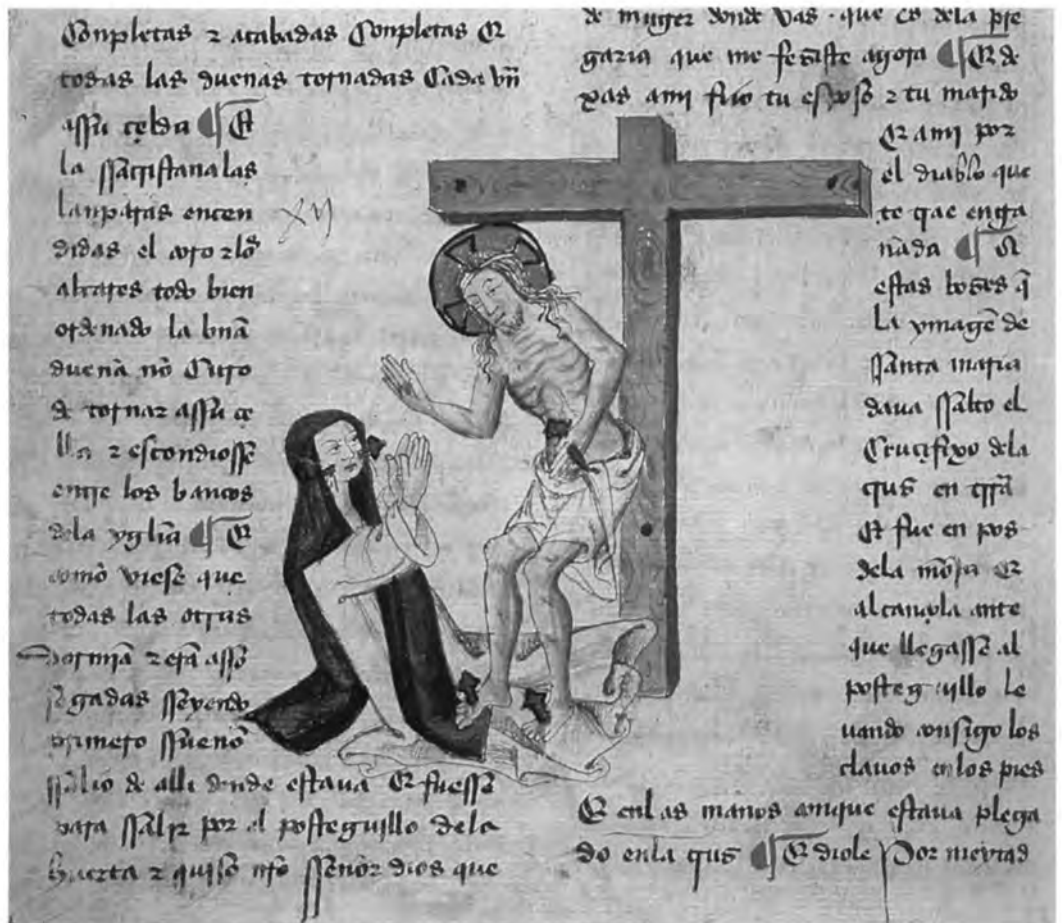 Conpletas ⁊ acabadas Conpletas Et
todas las duenas tornadas Cada vñ
assu çelda ¶ Et
la ssacristana las
lanparas encen
didas el coro ⁊ los
altares todo bien
ordenado la bnã
duena nõ Curo
de tornar assu çe
lla ⁊ escondiosse
entre los bancos
dela yglĩa ¶ Et
commo viese que
todas las otras
dormiã ⁊ erã asso
segadas sseyendo
primero ssueno
ssalio de alli donde estaua Et fuesse
para ssalir por el posteguillo dela
huerta ⁊ quiso nr̃o ssenor dios que
de muger donde vas · que es dela ple
garia que me feziste agora ¶ Et de
xas ami fijo tu esposo ⁊ tu marido
Et ami por
el diablo que
te trae enga
nada ¶ A
estas bozes q̃
la ymagẽ de
santa maria
daua ssalto el
Cruçifixo dela
crus en trrã
Et fue en pos
dela mõja Et
alcançola ante
que llegasse al
posteguillo le
uando consigo los
clauos enlos pies
Et enlas manos conque estaua plega
do enla crus ¶ Et diole por meytad